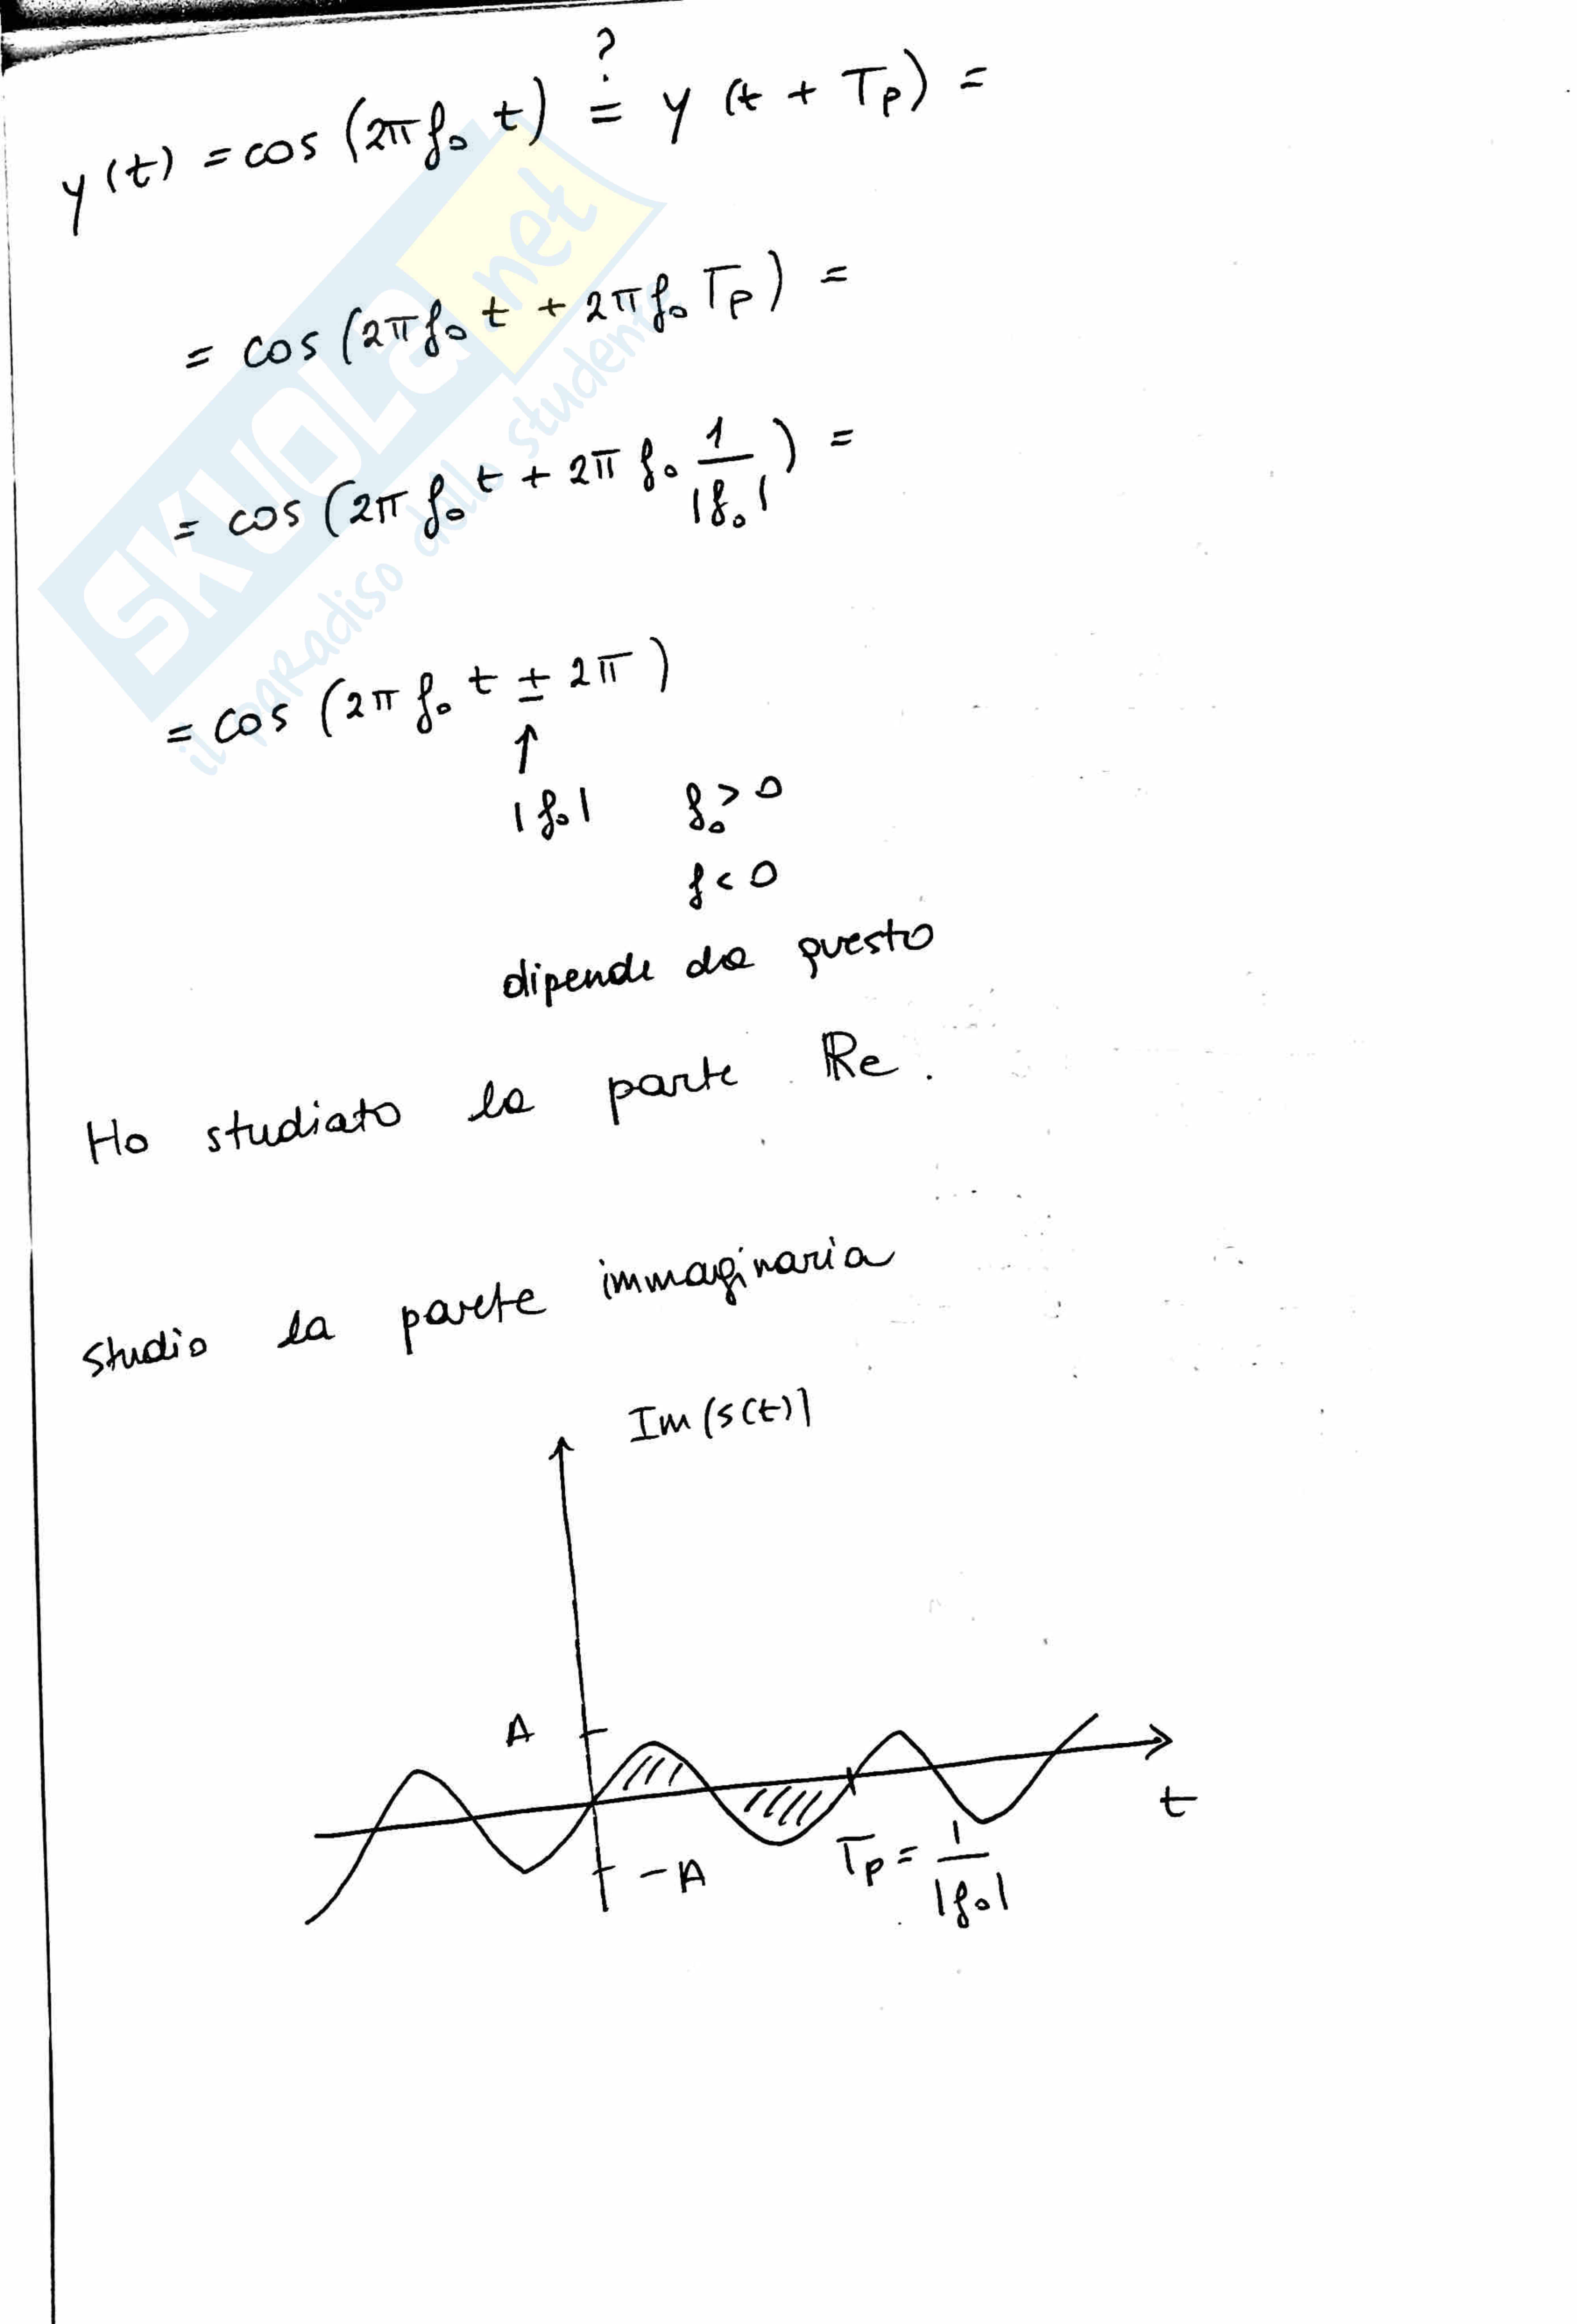 ?
y(t) = cos (2π f₀ t) ≐ y (t + Tp) =
= cos (2π f₀ t + 2π f₀ Tp) =
= cos (2π f₀ t + 2π f₀ 1/|f₀|) =
= cos (2π f₀ t ± 2π)
↑
|f₀| f₀ > 0
f < 0
dipende da questo
Ho studiato la parte ℝe.
studio la parte immaginaria
Im(s(t)]
A
t
-A
Tp = 1/|f₀|
SKUOLa.net
il paradiso dello studente